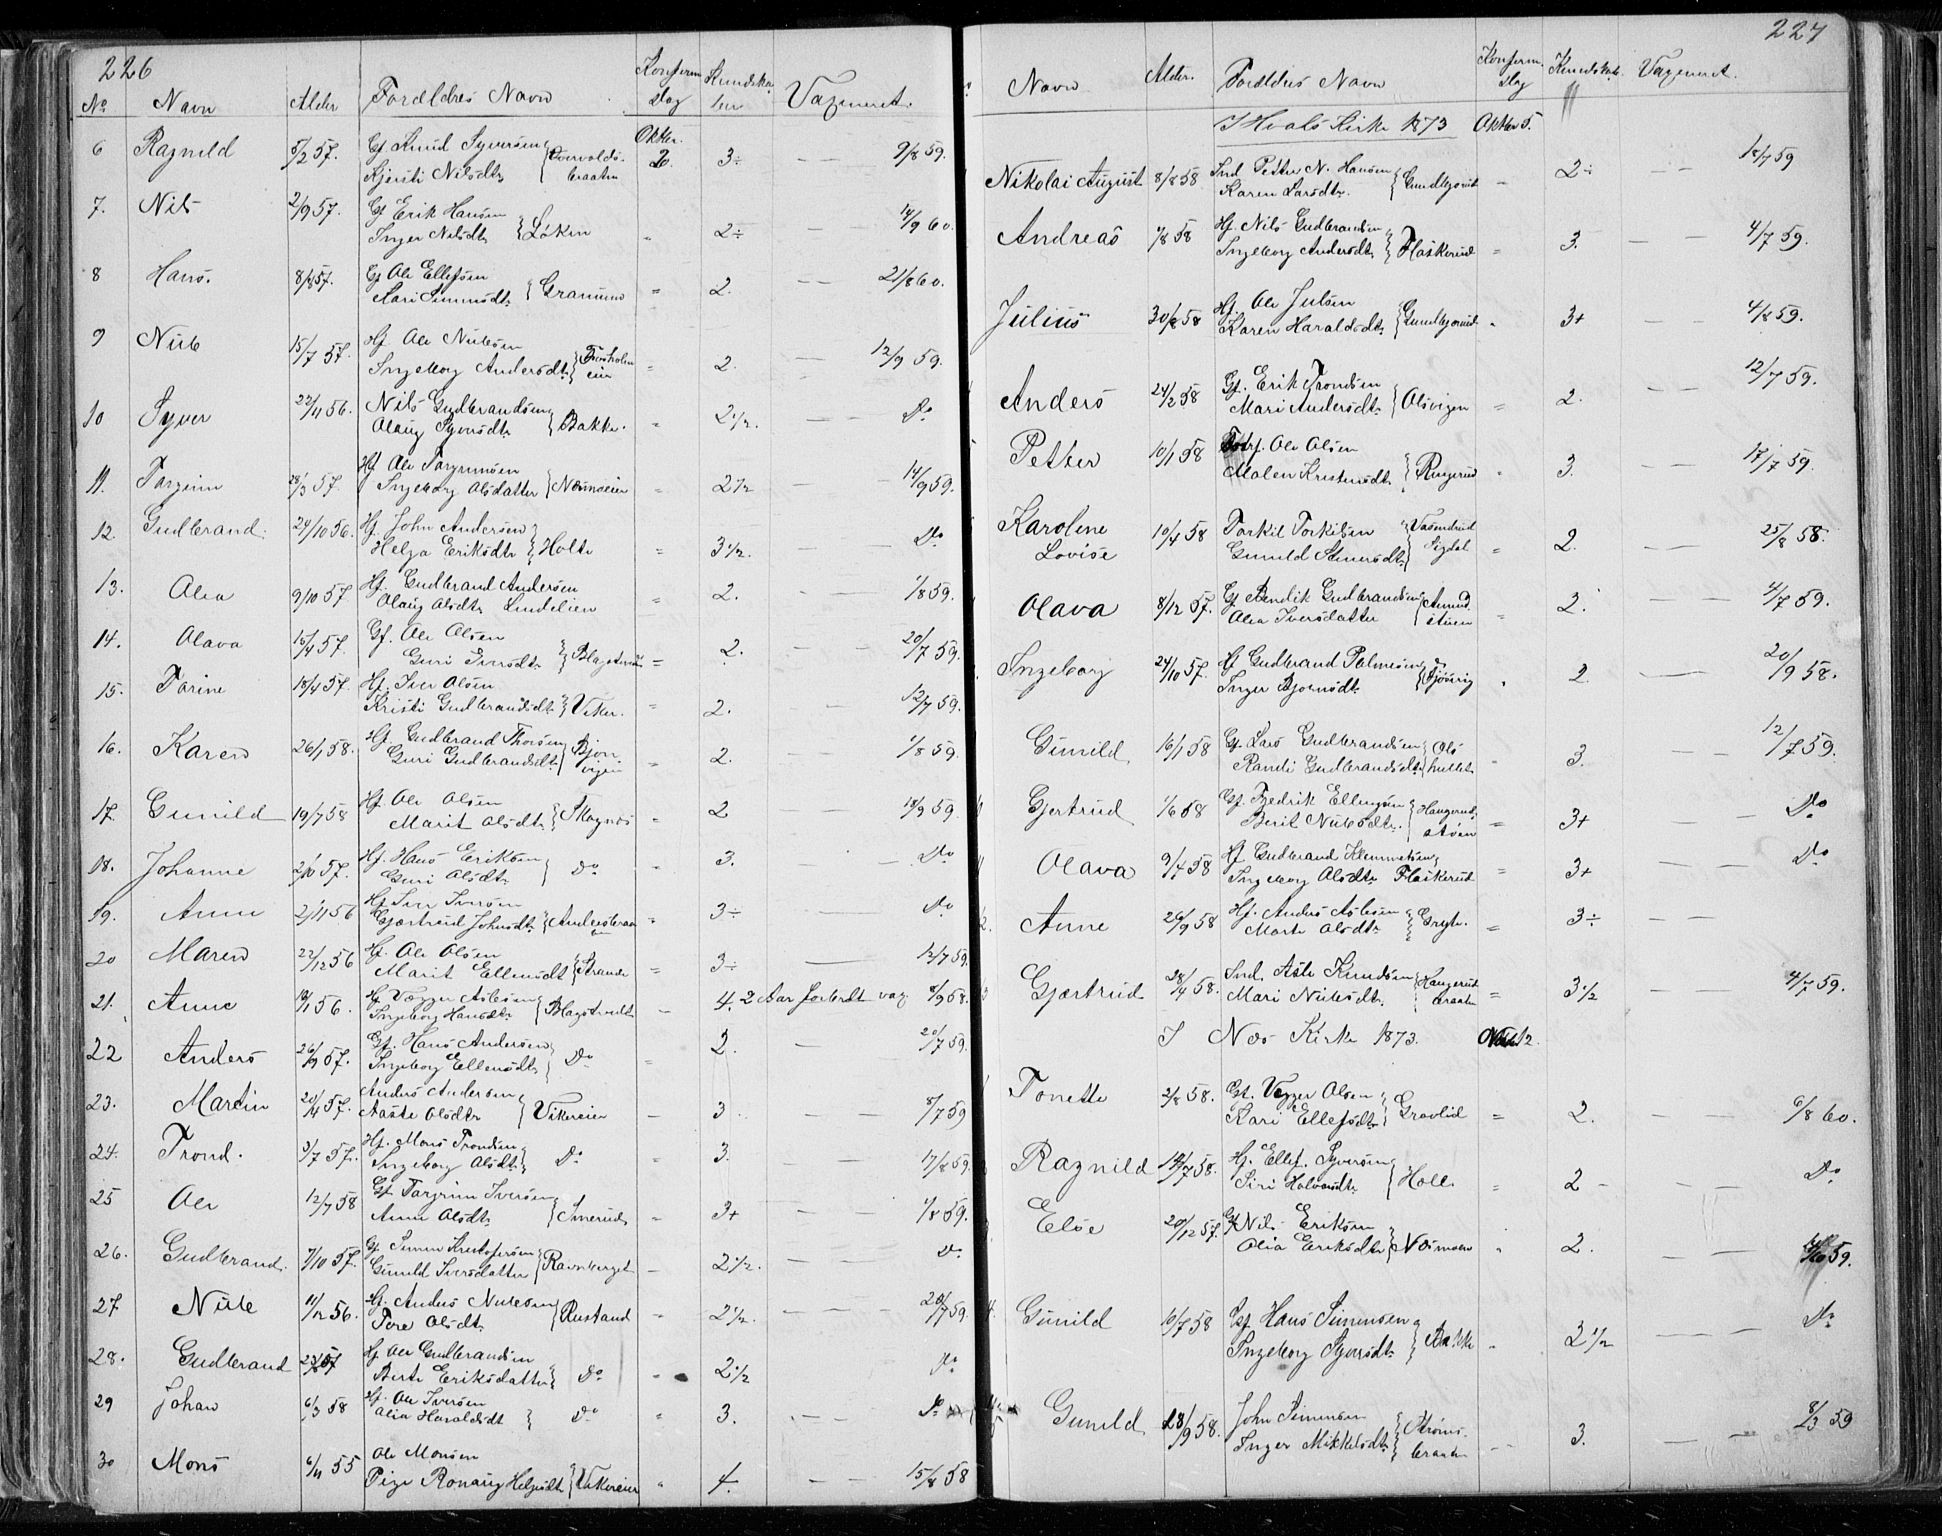 226
No Navn Alder Forældres Navn Konferm. Dag Kundska- ber Vaxineret.
6 Ragnild 5/2 57. Gf Knud Syversen Oktbr. 20. 3÷ — — 9/8 59.
Kjersti Nilsdtr. braaten
7. Nils 2/9 57. Gf Erik Hansen
Inger Nilsdtr. } Løken " 2÷ — — 14/9 60.
8 Hans. 8/8 57. Gf Ole Ellefsen
Kari Simensdtr. { Granum = 2. — — 21/8 60.
9 Nub 15/7 57. Hf Ole Nubsen
Ingeborg Andersdtr. eie = 2. — 12/9 59.
10 Syver 22/11 56. Nils Gudbrandsen
Olaug Syversdtr. } Bakke. " 2 1/2. — — Do
11. Torgrim 28/3 57. Hf Ole Torgrimsen
Ingeborg Olsdatter } Næsmoeien " 2 1/2 — — 14/9 59.
12. Gudbrand. 24/10 56. Hf. John Andersen
Helga Eriksdtr } Holte = 3 1/2. — Do
13. Olea 9/10 57 Hf. Gudbrand Andersen
Olaug Olsdtr. Lindelien = 2. — 1/8 59.
14. Olava 15/4 57. Gf. Ole Olsen
Guri Iversdtr. = 2. — — 20/7 59.
15. Torine 18/4 57. Hf. Iver Olsen
Kristi Gudbrandsdtr. } Viker. = 2. — — 12/7 59.
16. Karen 26/1 58. Hf. Gudbrand Thorsen
Guri Gudbrandsdtr. } Bjon- vigen = 2. — — 1/8 59.
17. Gunild 19/7 58 Hf. Ole Olsen
Marit Olsdtr. } Skagnes = 2 — — 18/9 59.
18. Johanne 2/10 57. Hf. Hans Eriksen
Guri Olsdtr. } Do " 3. — Do
19. Anne 2/11 56 Hf Iver Iversen
Gjertrud Johnsdtr. = 3÷ — — Do
20 Maren 22/12 56 Hf. Ole Olsen
Marit Ellensdtr } Strande = 3÷ — 12/7 59.
21. Anne 19/1 56. Hf Vegger Aslesen
Ingeborg Hansdtr. } Blagstvedt — 4. 2 Aar forberdt vax. 8/9 58.
22 Anders 26/9 57. Gf. Hans Andersen
Ingeborg Ellensdtr. } Do = 2. — — 20/7 59.
23. Martin 20/4 57. Anders Andersen
Aaste Olsdtr. } Vikereien — 3. — — 8/7 59
24. Trond. 3/7 57. Hf. Mons Trondsen
Ingeborg Olsdtr. } Do = 3. — — 17/8 59.
25 Ole 12/7 58 Gf Torgrim Iversen
Anne Olsdtr. } Smerud. = 3+ — — 1/8 59.
26. Gudbrand. 7/10 57. Gf. Simen Kristofersen
Gunild Iversdatter } Ravnberget — 2 1/2. — — Do
27 Nub 11/12 56. Hf. Anders Nubsen
Tore Olsdtr. } Rustand = 2 1/2. — — 20/7 59.
28. Gudbrand Hf Ole Gudbrandsen
Berte Eriksdatter } Do " 2 1/2 — — Do
29 Johan 6/3 58 Hf. Ole Iversen
Olia Haraldsdt } Do " 3. — — Do
30 Mons 6/11 55 Ole Monsen
Pige Ronaug Helgesdt } Vikereien " 4. — — 15/8 58
227
Navn Alder. Forældres Navn Konferm. Dag Kundskab. Vaxineret.
I Hvals Kirke 1873 Oktbr 5.
Nikolai August 8/8 58 Ind. Petter N. Hansen
Karen Larsdtr. { Gundbjørud = 2÷ — — 18/7 59
Andreas 1/8 58 Hf. Nils Gudbrandsen
Ingeborg Andersdtr. } Flaskerud = 3. — — 4/7 59.
Julius 30/8 58 Hf. Ole Julsen
Karen Haraldsdtr. { Gundbjorud " 3+ — — 4/8 59.
Anders 24/2 58 Gf. Erik Trondsen
Mari Andersdtr. } Olsvigen = 2. — — 12/7 59.
Petter 10/1 58 Ole Olsen
Malen Kristensdtr. } Ringerud " 3. — — 17/7 59.
Karoline Lovise 10/4 58 Torkil Torkilsen
Gunild Steneredtr. Sigdal = 2. — — 25/8 58.
Olava 8/12 57. Gf Bendik Gudbrandsen
Olea Iversdatter } Amund- stuen = 2. — — 4/7 59.
Ingeborg 24/10 57. Hf Gudbrand Palmesen
Inger Bjornsdtr. " 2. — — 20/9 58.
Gunild 16/1 58 Gf. Lars Gudbrandsen
Randi Gudbrandsdtr. " 3. — — 12/7 59.
Gjertrud 1/6 58 Gf. Fredrik Ellingsen
Berit Nubsdtr. } Haugerud- støen = 3+ — — Do
Olava 9/4 58 Hf Gudbrand Klemmetsen
Ingeborg Olsdtr. Flaskerud = 3+ — — Do
Anne 26/9 58 Hf. Anders Aslesen
Marte Olsdtr. } Gryte. = 3÷ — —
Gjærtrud 28/4 58. Ind. Asle Knudsen
Mari Nubsdtr. } Haugerud- braaten = 3 1/2 — — 4/7 59.
I Næs Kirke 1873. 12.
Tonette 2/8 58. Gf. Vegger Olsen
Kari Ellefsdtr. } Gravlid = 2. — — 6/8 60.
Ragnild 19/7 58. Hf. Ellef. Syversen
Siri Halvorsdtr. } Holte " 2 — — — Do
Else 20/12 57. Gf Nils Eriksen
Olia Eriksdtr. } Næsmoen " 2. — — 59.
Gunild 16/7 58 Gf Hans Simensen
Ingeborg Syversdtr. } Bakke " 2 1/2 — — Do
Gunild 28/9 58. John Simensen
Inger Mikkelsdtr. } Strøms- braaten " 3. — — 8/3 59